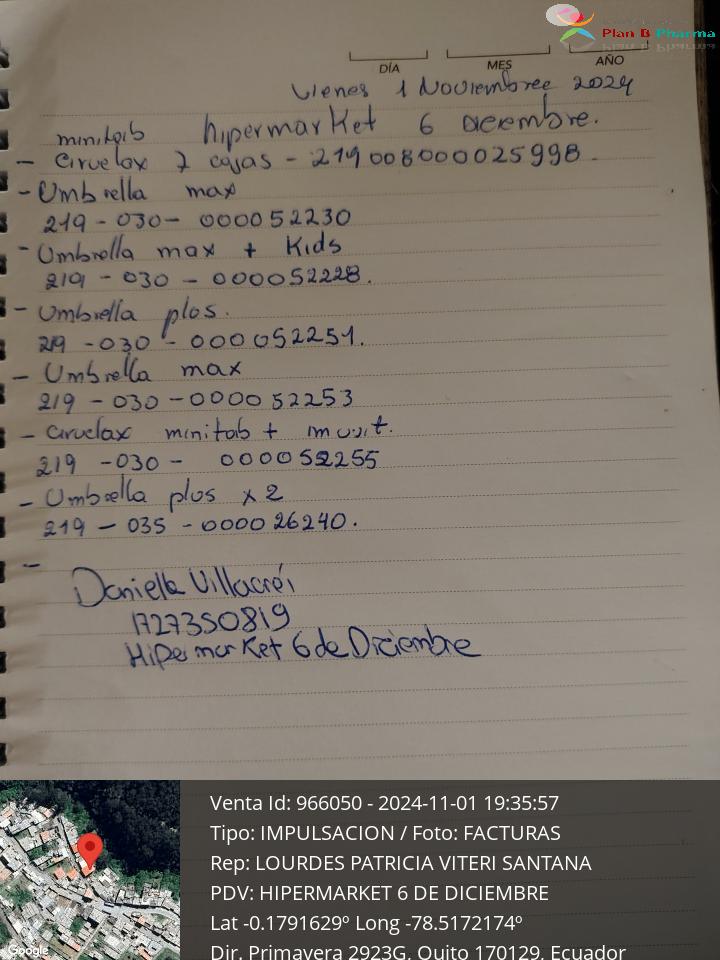 Plan B Pharma
DÍA MES AÑO
Vienes 1 Noviembree 2024
minitab hipermarket 6 Diciembre.
- Ciruelax 7 cajas - 219008000025998
- Umbrella max
219 - 030 - 000052230
- Umbrella max + Kids
219 - 030 - 000052228.
- Umbrella plos.
219 - 030 - 000052251.
- Umbrella max
219 - 030 - 000052253
- Ciruelax minitab +
219 - 030 - 000052255
- Umbrella plus x 2
219 - 035 - 000026240.
-
Daniella Villacréi
1727350819
Hipermarket 6 de Diciembre
Venta Id: 966050 - 2024-11-01 19:35:57
Tipo: IMPULSACION / Foto: FACTURAS
Rep: LOURDES PATRICIA VITERI SANTANA
PDV: HIPERMARKET 6 DE DICIEMBRE
Lat -0.1791629º Long -78.5172174º
Dir. Primavera 2923G, Quito 170129, Ecuador
Google